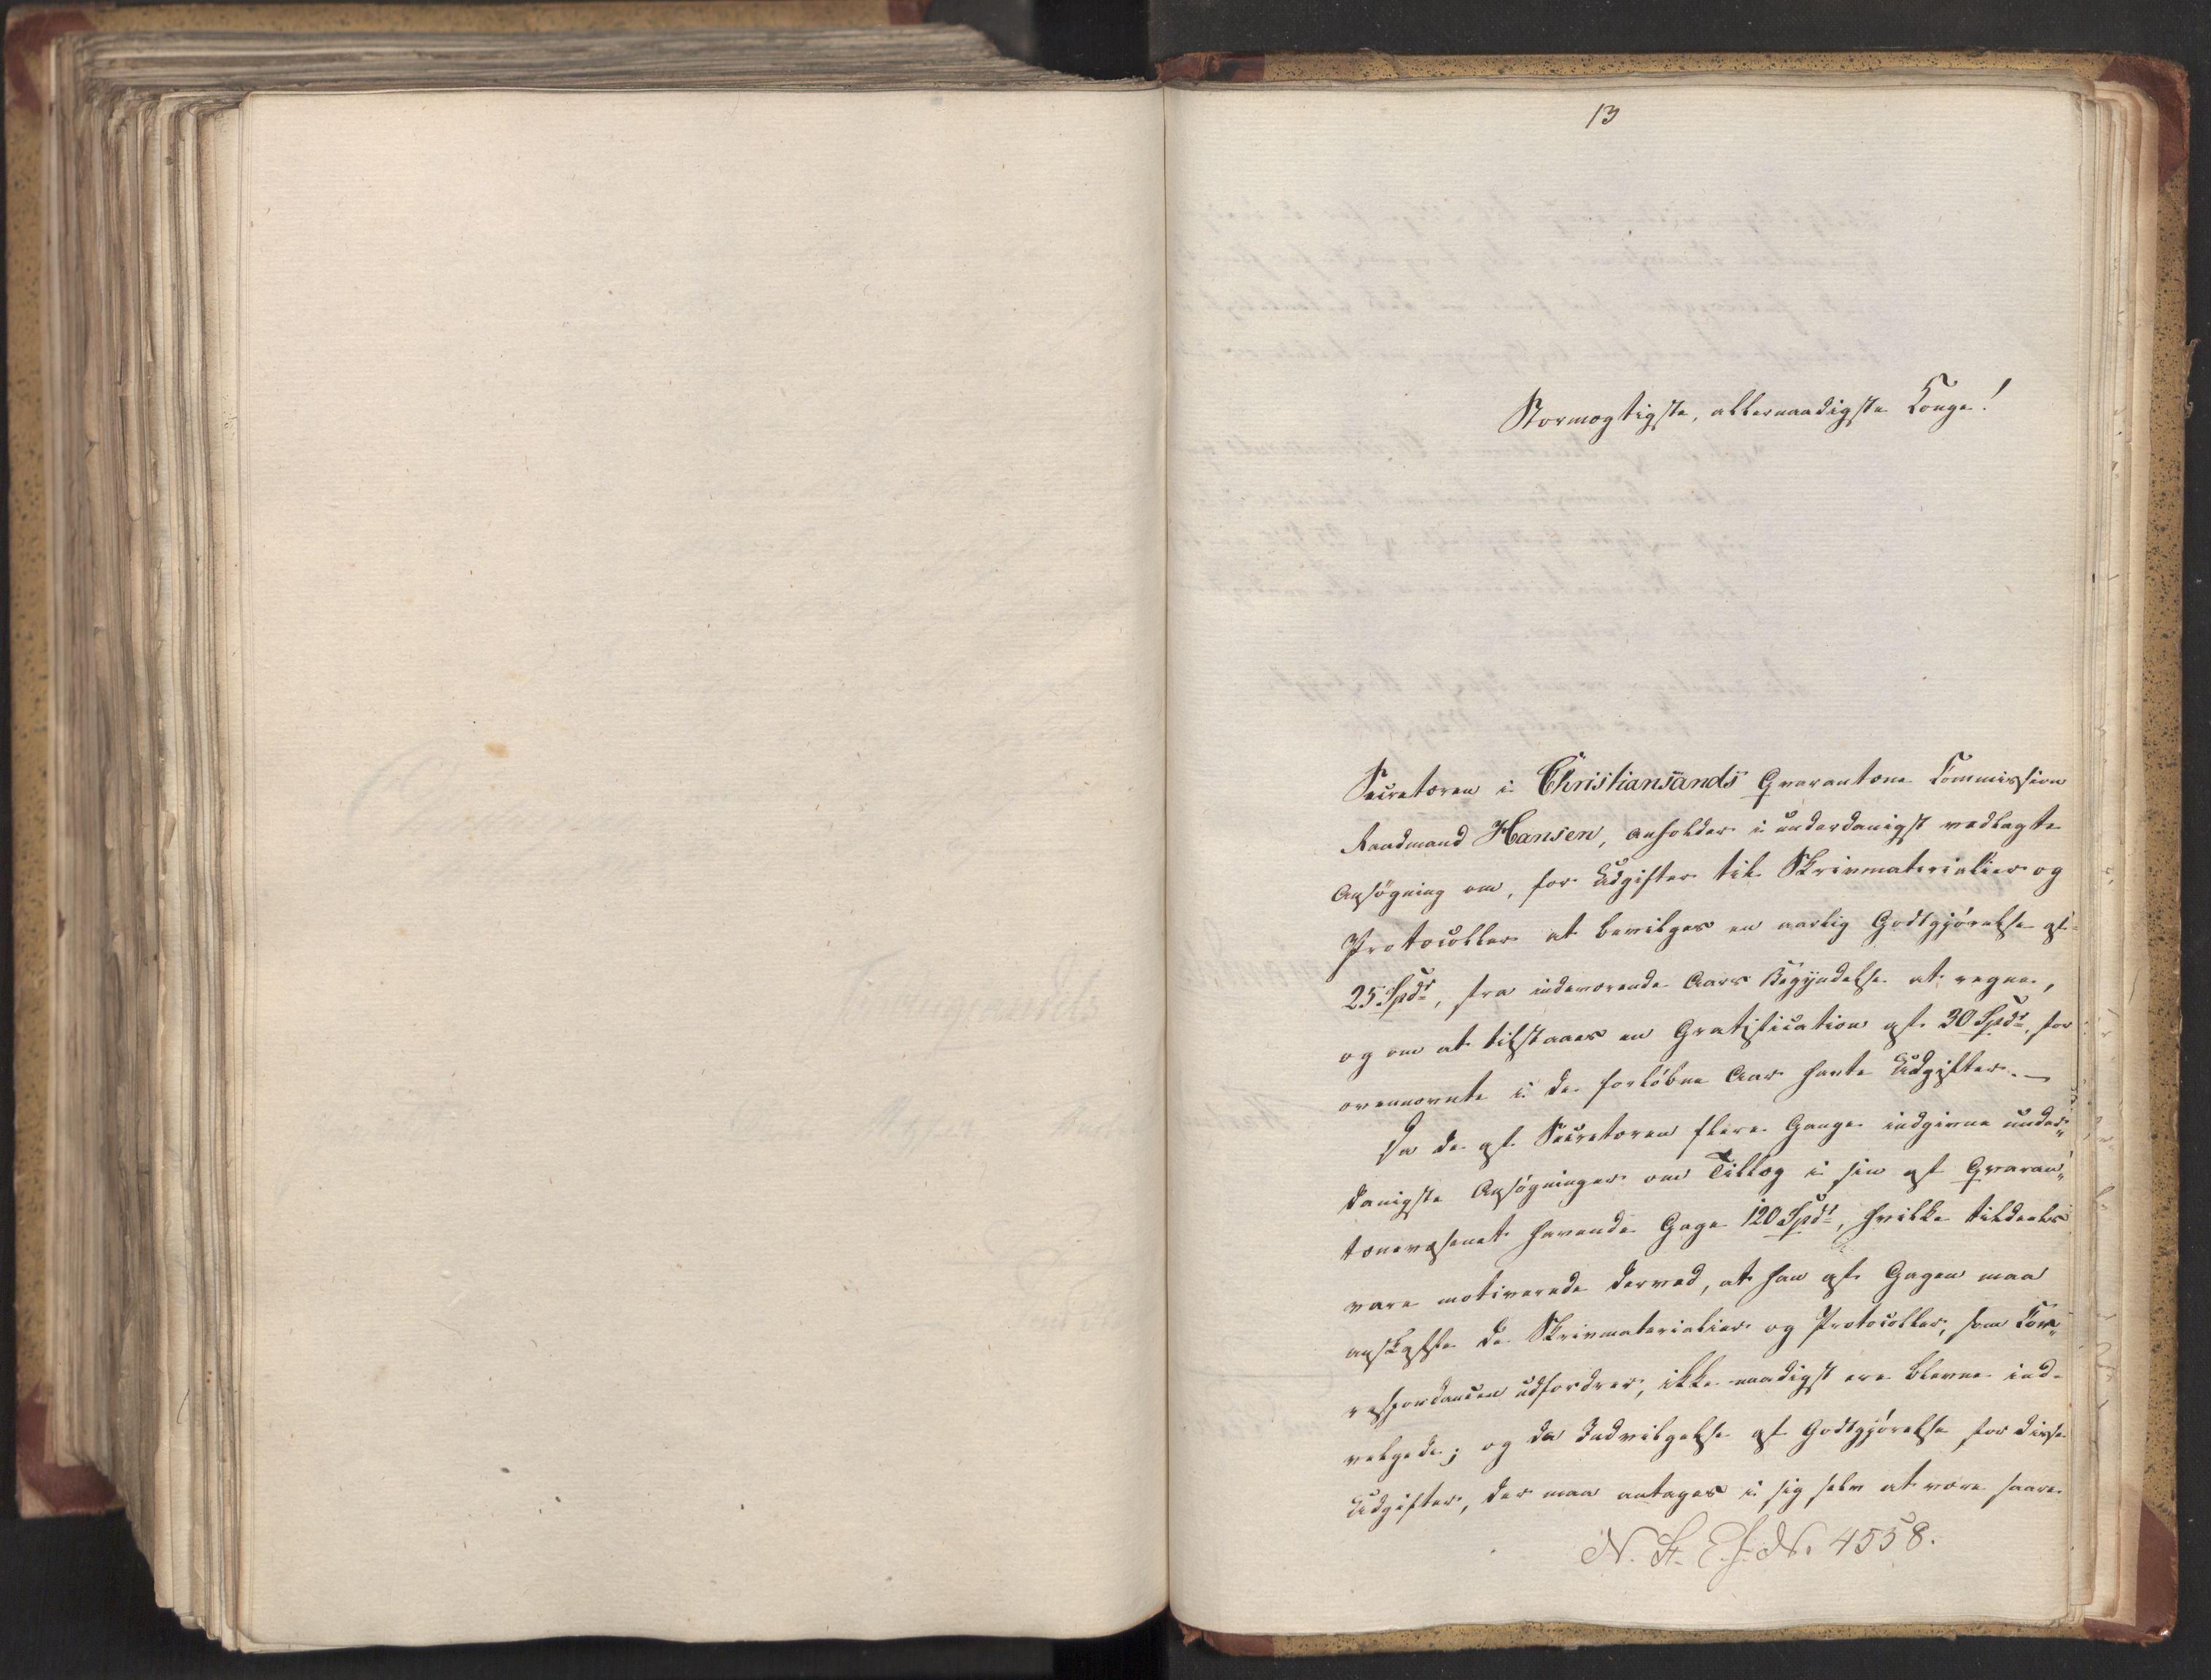 13
Stormægtigste, allernaadigste Konge!
Secretæren i Christiansands Qvarantæne Commission
Raadmand Hansen, anholder i underdanigst vedlagte
Ansøgning om, for Udgifter til Skrivmaterialier og
Protocoller at bevilges en aarlig Godtgjørelse af
25 Spdr, fra indeværende Aars Begyndelse at regne,
og om at tilstaaes en Gratification af 30 Spdr, for
ovennævnte i de forløbne Aar havte Udgifter. –
Da de af Secretæren flere Gange indgivne under„
danigste Ansøgninger om Tillæg i sin af Qvaran„
tænevæsenet havende Gage 120 Spdr, hvilke tildeels
vare motiverede derved, at han af Gagen maa
anskaffe de Skrivmaterialier og Protocoller, som Cor„
respondancen udfordrer, ikke naadigst ere blevne ind-
velgede; og da Indvilgelse af Godtgjørelse for disse
Udgifter, der maa antages i sig selv at være saare
N. St. E. J. No. 4558.